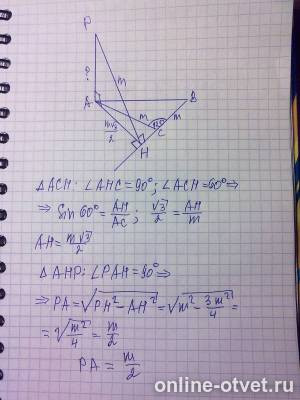 P
?
m
A
B
m
120°
m
m√3/2
C
H
△ACH: ∠AHC=90°; ∠ACH=60° ⇒
⇒ Sin 60° = AH/AC ; √3/2 = AH/m
AH = m√3/2
△AHP: ∠PAH=90° ⇒
⇒ PA = √(PH² - AH²) = √(m² - 3m²/4) =
= √(m²/4) = m/2
PA = m/2
online-otvet.ru